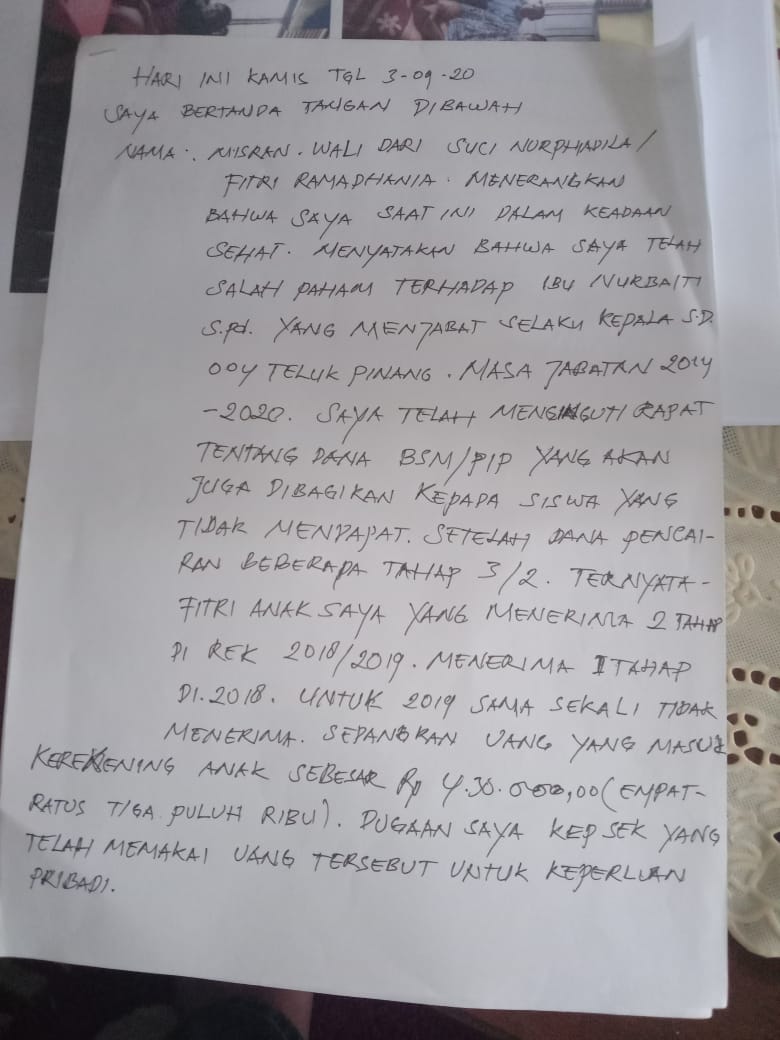 HARI INI KAMIS TGL 3-09-20
SAYA BERTANDA TANGAN DIBAWAH
NAMA : MISRAN. WALI DARI SUCI NURPHADILA /
FITRI RAMADHANIA. MENERANGKAN
BAHWA SAYA SAAT INI DALAM KEADAAN
SEHAT. MENYATAKAN BAHWA SAYA TELAH
SALAH PAHAM TERHADAP IBU NURBAITI
S.pd. YANG MENJABAT SELAKU KEPALA S.D.
004 TELUK PINANG. MASA JABATAN 2014
-2020. SAYA TELAH MENGIKUTI RAPAT
TENTANG DANA BSM/PIP YANG AKAN
JUGA DIBAGIKAN KEPADA SISWA YANG
TIDAK MENDAPAT. SETELAH DANA PENCAI-
RAN BEBERAPA TAHAP 3/2. TERNYATA-
FITRI ANAK SAYA YANG MENERIMA 2 TAHAP
DI REK 2018/2019. MENERIMA I TAHAP
DI.2018. UNTUK 2019 SAMA SEKALI TIDAK
MENERIMA. SEDANGKAN UANG YANG MASUK
KEREKENING ANAK SEBESAR Rp 4.30.000,00 (EMPAT-
RATUS TIGA PULUH RIBU). DUGAAN SAYA KEP SEK YANG
TELAH MEMAKAI UANG TERSEBUT UNTUK KEPERLUAN
PRIBADI.